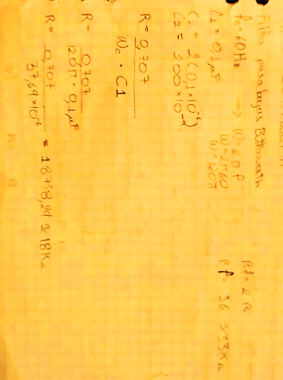 Filtro pasabajas Butterworth
fc = 60Hz → W = 2πf
W = 2π60
W = 120π
C1 = 0,1µF
C2 = 2(0,1x10⁻⁶)
C2 = 200x10⁻⁹
Rf = 2R
Rf = 36 ≈ 33KΩ
R = 0,707
Wc · C1
R = 0,707
120π · 0,1µF
R = 0,707
37,69x10⁻⁶
= 18758,29 ≈ 18KΩ